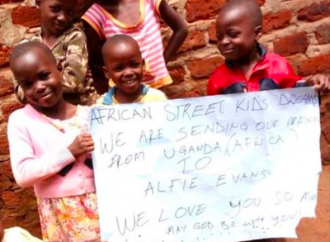 AFRICAN STREET KIDS DREAM
WE ARE SENDING OUR PRAYERS
FROM UGANDA (AFRICA)
TO
ALFIE EVANS
WE LOVE YOU SO
MAY GOD BE YOU